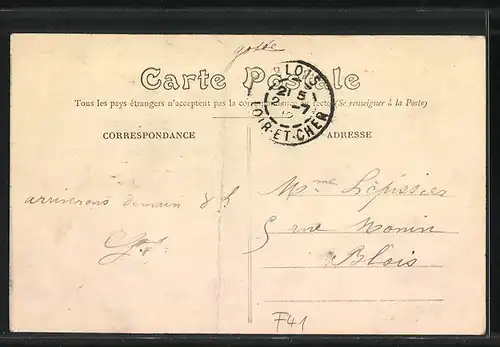 Carte Postale
Tous les pays étrangers n'acceptent pas la correspondance au recto (Se renseigner à la Poste)
BLOIS
21 5
2 -7
12
LOIR-ET-CHER
CORRESPONDANCE
ADRESSE
arriverons demain 8 h
Mme Lépissier
5 rue Monin
Blois
F41